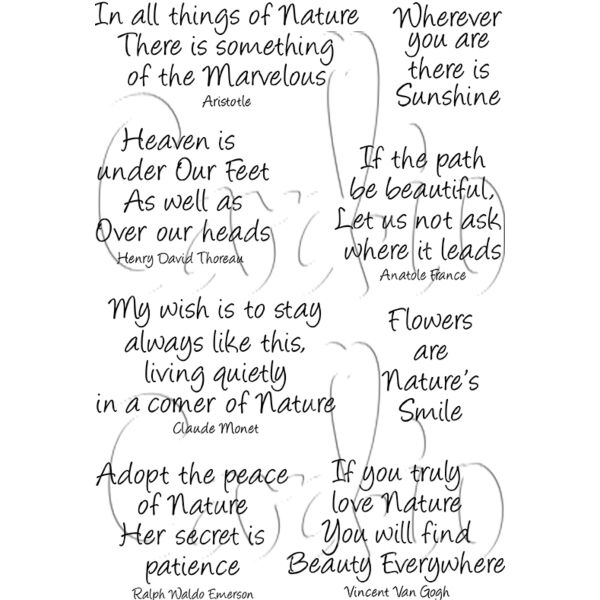 In all things of Nature
There is something
of the Marvelous
Aristotle
Wherever
you are
there is
Sunshine
Heaven is
under Our Feet
As well as
Over our heads
Henry David Thoreau
If the path
be beautiful,
Let us not ask
where it leads
Anatole France
My wish is to stay
always like this,
living quietly
in a corner of Nature
Claude Monet
Flowers
are
Nature's
Smile
Adopt the peace
of Nature
Her secret is
patience
Ralph Waldo Emerson
If you truly
love Nature
You will find
Beauty Everywhere
Vincent Van Gogh